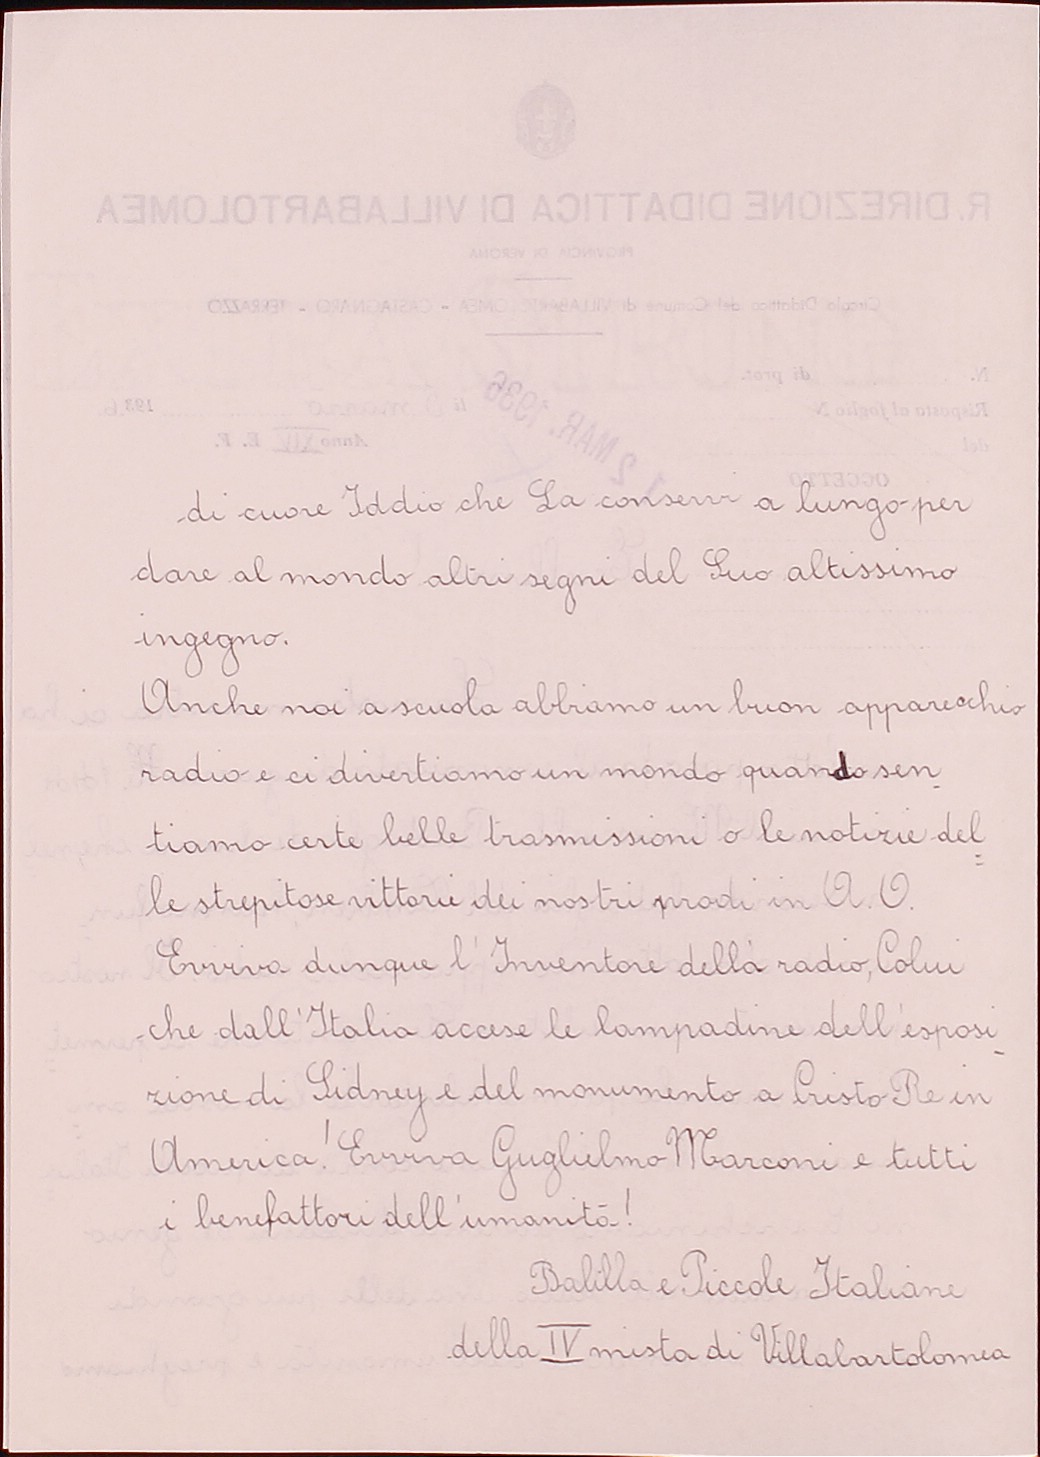 di cuore Iddio che La conservi a lungo per
dare al mondo altri segni del Suo altissimo
ingegno.
Anche noi a scuola abbiamo un buon apparecchio
radio e ci divertiamo un mondo quando sen_
tiamo certe belle trasmissioni o le notizie del=
le strepitose vittorie dei nostri prodi in A.O.
Evviva dunque l'Inventore della radio, Colui
che dall'Italia accese le lampadine dell'esposi_
zione di Sidney e del monumento a Cristo Re in
America! Evviva Guglielmo Marconi e tutti
i benefattori dell'umanità!
Balilla e Piccole Italiane
della IV mista di Villabartolomea